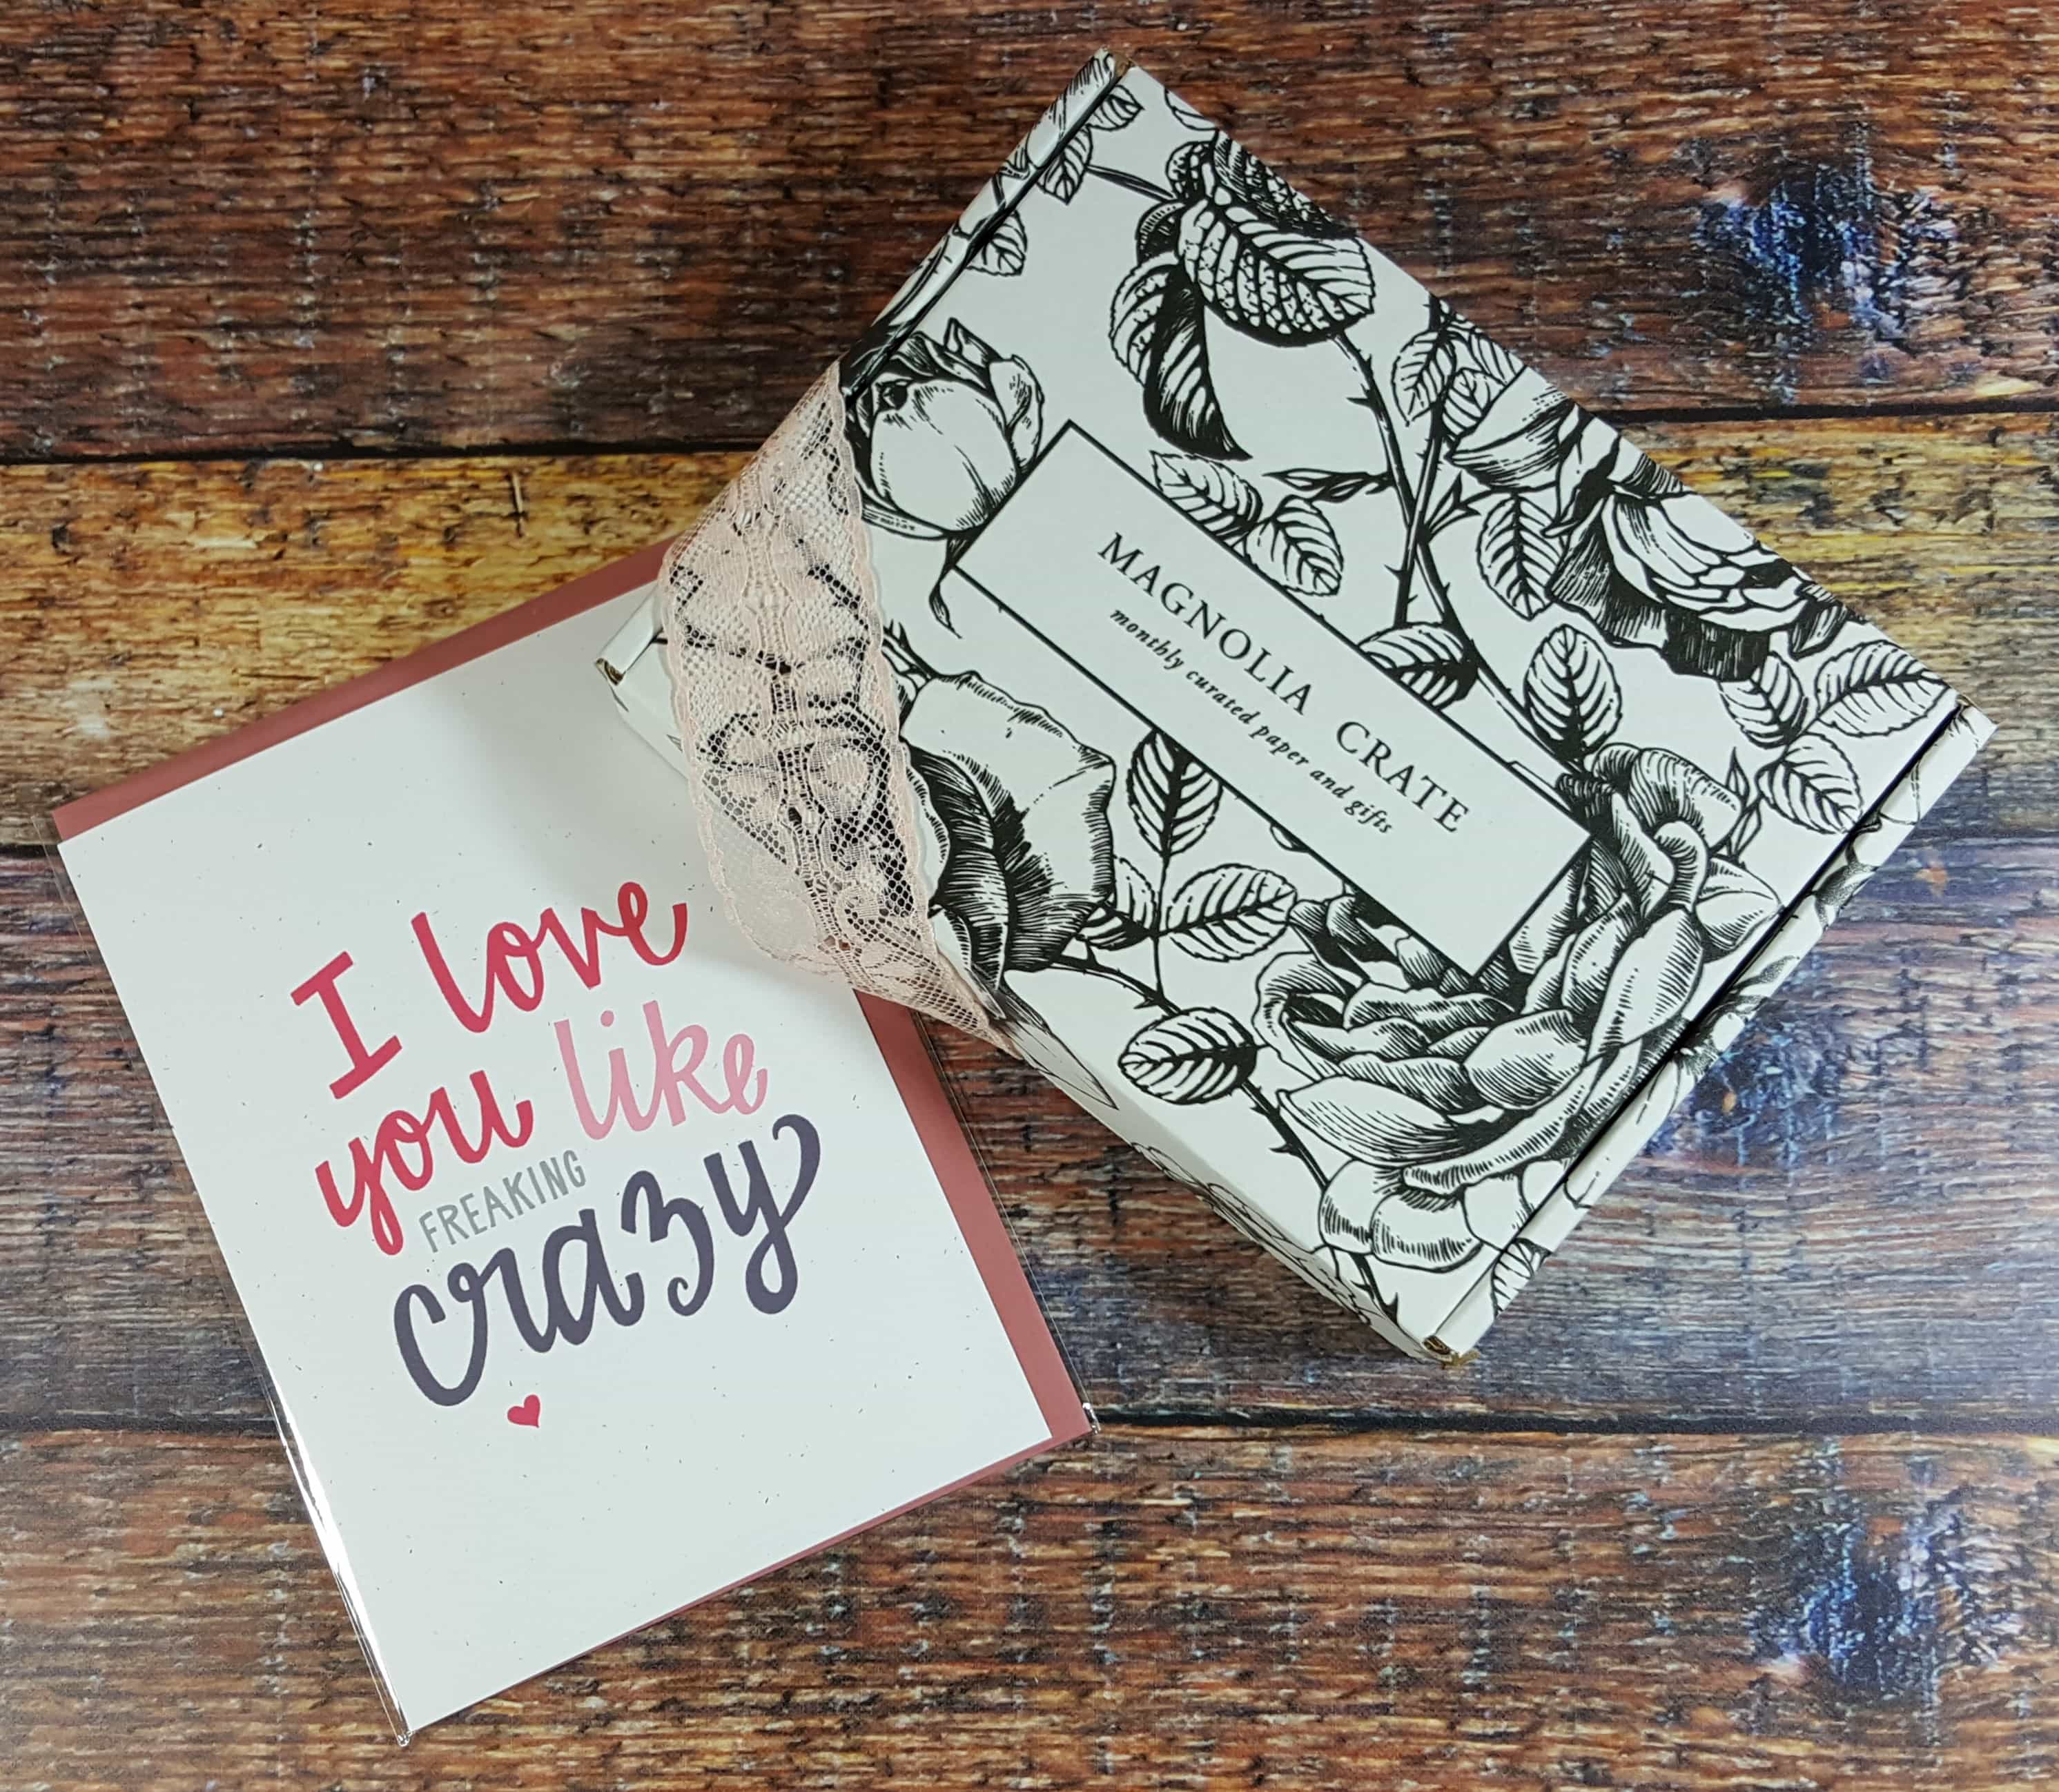 I love
you like
FREAKING
crazy
MAGNOLIA CRATE
monthly curated paper and gifts